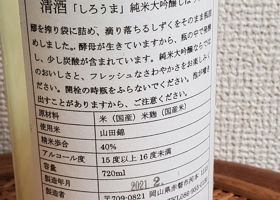 清酒「しろうま」純米大吟醸しぼり
醪を搾り袋に詰め、滴り落ちるしずくをそのまま瓶詰
めしました。酵母が生きていますから、瓶の中で発酵
し、少し炭酸が含まれています。
純米大吟醸ならで
のおいしさと、フレッシュなさわやかさをお楽しみ
い。開栓の時瓶をふらないでください。泡が噴き
出すことがありますから、ご注意ください。
原材料 米(国産)米麹(国産米)
使用米 山田錦
精米歩合 40%
アルコール度 15度以上16度未満
容量 720ml
製造年月 2021.2
製造者
〒709-0821 岡山県赤磐市河本